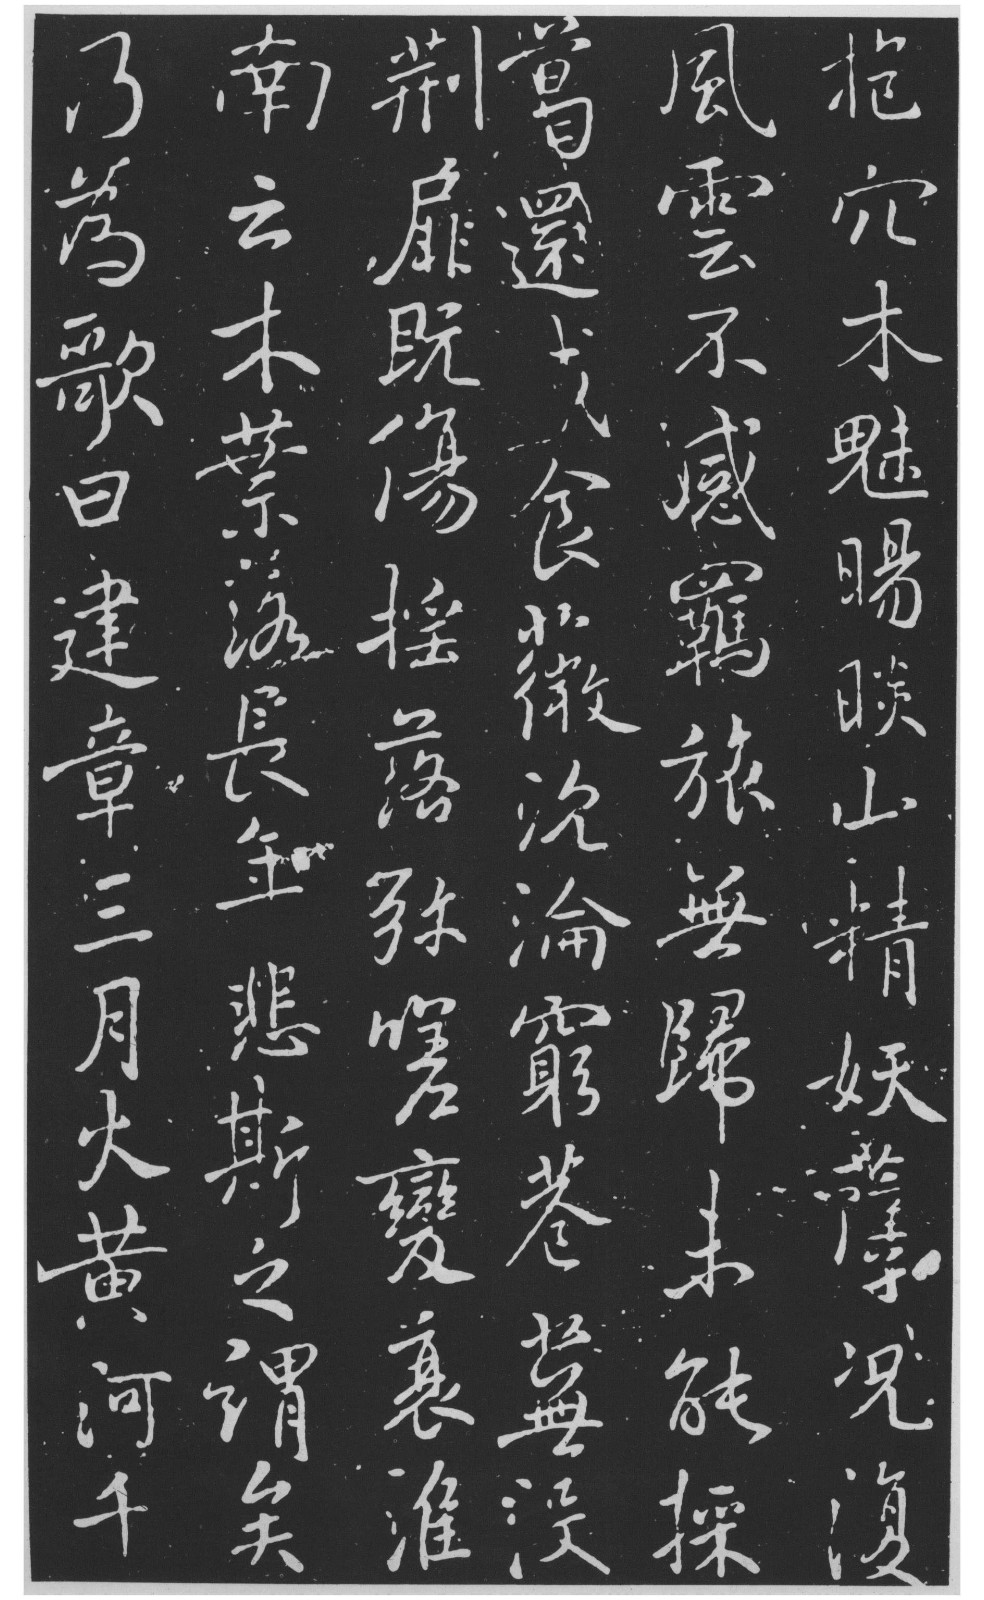 抱穴木魅賜睒山精妖孽况復
風雲不感羈旅無歸未能採
葛還成食薇沉淪窮巷蕪沒
荆扉既傷摇落弥嗟變衰淮
南云木葉落長年悲斯之謂矣
乃為歌曰建章三月火黄河千